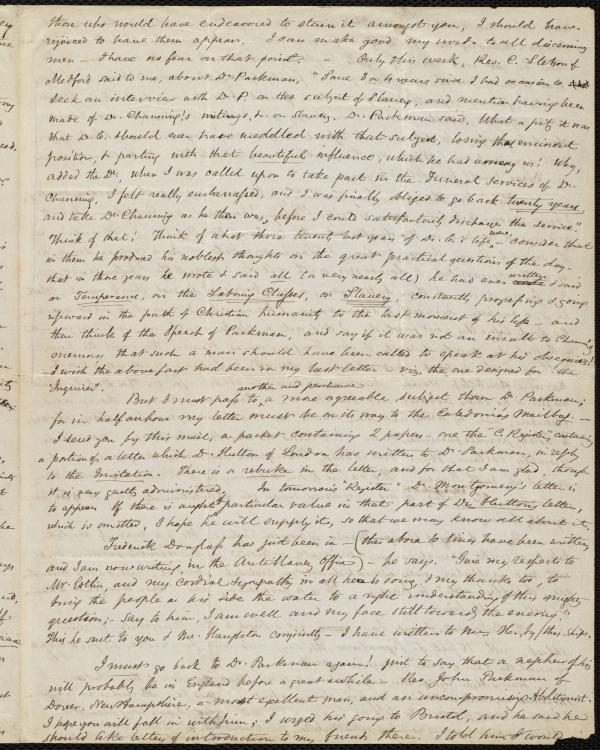 those who would have endeavored to stain it amongst you, I should have
rejoiced to have them appear. I can make good my words to all discerning
men - I have no fear on that point. - Only this week, Rev. C. Stetson of
Medford said to me, about Dr. Parkman, "Some 3 or 4 years since I had occasion to
seek an interview with Dr. P. on the subject of Slavery, and mention having been
made of Dr. Channing's writings, &c. on Slavery, Dr. Parkman said, What a pity it was
that Dr. C. should ever have meddled with that subject, losing that eminent
position, & parting with that beautiful influence, which he had among us! Why,
added the Dr., when I was called upon to take part in the Funeral Services of Dr.
Channing, I felt really embarrassed, and I was finally obliged to go back twenty years,
and take Dr. Channing as he then was, before I could satisfactorily discharge the service"
Think of that! Think of what those twenty last years of Dr. C.'s life were, - consider that
in them he produced his noblest thoughts on the great practical questions of the day -
that in those years he wrote & said all (or very nearly all) he had ever written & said
on Temperance, on the Laboring Classes, on Slavery, constantly progressing & going
upward in the path of Christian humanity to the last moment of his life - and
then think of the Speech of Parkman, and say if it was not an insult to Channing's
memory that such a man should have been called to speak at his obsequies!
I wish the above fact had been in my last letter - viz. the one designed for the
Inquirer.
But I must pass to another and perchance a more agreeable subject than Dr. Parkman;
for in half an hour my letter must be on its way to the Caledonia's Mailbag. -
I send you by this mail, a packet containing 2 papers - one the "C. Register", containing
a portion of a letter which Dr. Hutton of London has written to Dr. Parkman, in reply
to the Invitation. There is a rebuke in the letter, and for that I am glad, though
it is very gently administered. In tomorrow's "Register" Dr. Montgomery's letter is
to appear. If there is aught of particular value in that part of Dr. Hutton's letter,
which is omitted, I hope he will supply it, so that we may know all about it.
Frederick Douglass has just been in - (the above 10 lines have been written,
and I am now writing, in the Anti Slavery Office) - he says. "Give my respects to
Mr. Estlin, and my cordial sympathy in all he is doing, & my thanks too, to
bring the people on his side the water to a right understanding of this mighty
question; - say to him, I am well and my face still towards the enemy."
This he sent to you & Mr. Haughton conjointly - I have written to Mr. H. by this ship.
I must go back to Dr. Parkman again! just to say that a nephew of his
will probably be in England before a great while - Rev. John Parkman of
Dover, New Hampshire, a most excellent man, and an uncompromising Abolitionist.
I hope you will fall in with him; I urged his going to Bristol, and he said he
should like letters of introduction to my friends there. I told him I would